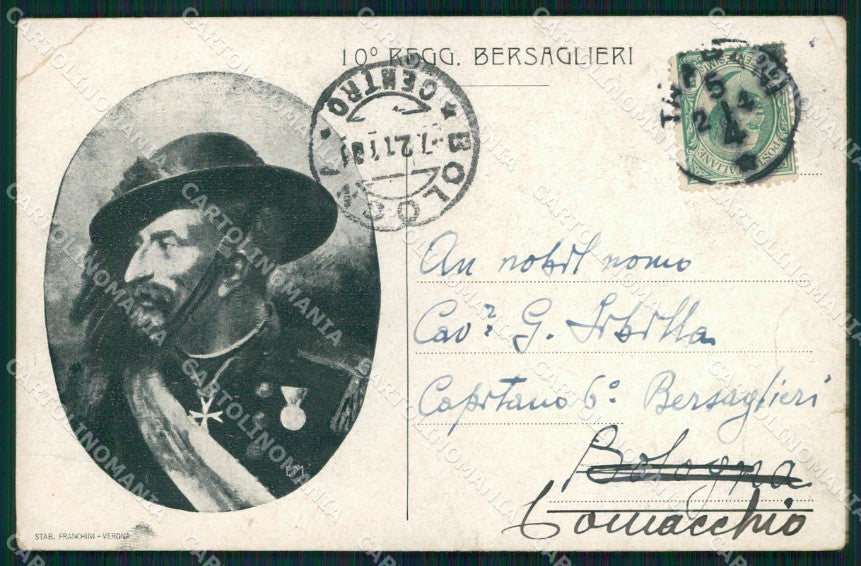 10º REGG. BERSAGLIERI
BOLOGNA
CENTRO
TRAPANI
5
2 14
4
POSTE ITALIANE
An nobil nomo
Cavº. G. Sibilla
Capitano 6º Bersaglieri
Bologna
Comacchio
STAB. FRANCHINI - VERONA
CARTOLINOMANIA